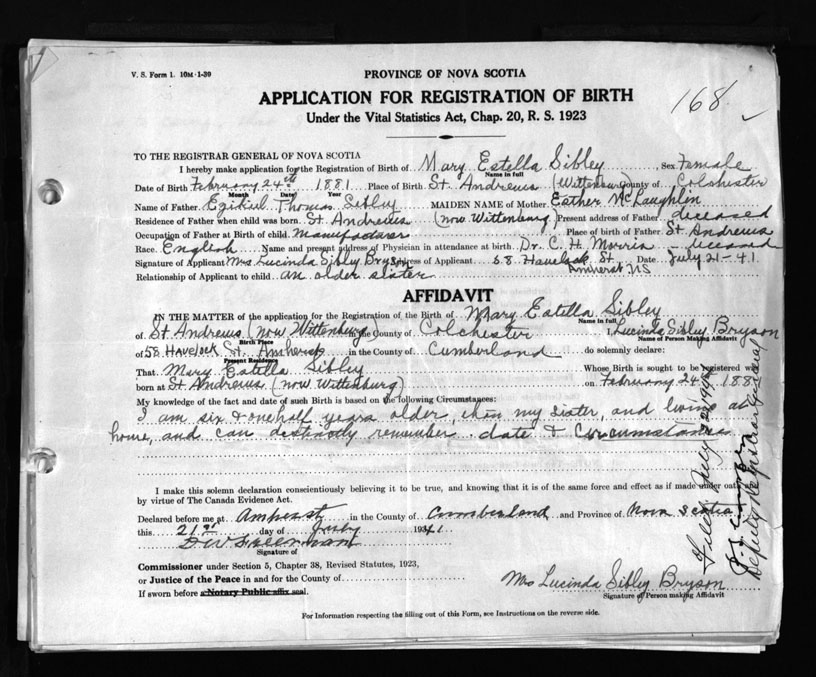 V. S. Form 1. 10M-1-39
PROVINCE OF NOVA SCOTIA
168
APPLICATION FOR REGISTRATION OF BIRTH
Under the Vital Statistics Act, Chap. 20, R. S. 1923
TO THE REGISTRAR GENERAL OF NOVA SCOTIA
I hereby make application for the Registration of Birth of Mary Estella Sibley Sex Female
Name in full
Date of Birth February 24th 1881 Place of Birth St. Andrews (Wittenburg) County of Colchester
Month Date Year
Name of Father Ezikiel Thomas Sibley MAIDEN NAME of Mother Esther McLaughlin
Residence of Father when child was born St. Andrews (now Wittenburg) Present address of Father deceased
Occupation of Father at Birth of child Manufacturer Place of birth of Father St Andrews
Race English Name and present address of Physician in attendance at birth Dr. C. H. Morris - deceased
Signature of Applicant Mrs Lucinda Sibley Bryson Address of Applicant 58 Havelock St. Date July 21-41.
Amherst NS
Relationship of Applicant to child an older sister
AFFIDAVIT
IN THE MATTER of the application for the Registration of the Birth of Mary Estella Sibley
Name in full
of St Andrews (now Wittenburg) in the County of Colchester I, Lucinda Sibley Bryson
Birth Place Name of Person Making Affidavit
of 58 Havelock St. Amherst in the County of Cumberland do solemnly declare:
Present Residence
That Mary Estella Sibley Whose Birth is sought to be registered was
born at St Andrews (now Wittenburg) on February 24 188
My knowledge of the fact and date of such Birth is based on the following Circumstances:
I am six & one half years older, then my sister, and living at
home, and can distinctly remember date & circumstances
I make this solemn declaration conscientiously believing it to be true, and knowing that it is of the same force and effect as if made under oath
by virtue of The Canada Evidence Act.
Declared before me at Amherst in the County of Cumberland and Province of Nova Scotia
this 21st day of July 1941
Signature of
Commissioner under Section 5, Chapter 38, Revised Statutes, 1923,
or Justice of the Peace in and for the County of
If sworn before a Notary Public affix seal.
Mrs Lucinda Sibley Bryson
Signature of Person making Affidavit
For Information respecting the filling out of this Form, see Instructions on the reverse side.
Filed July 22 1941
Deputy Registrar General